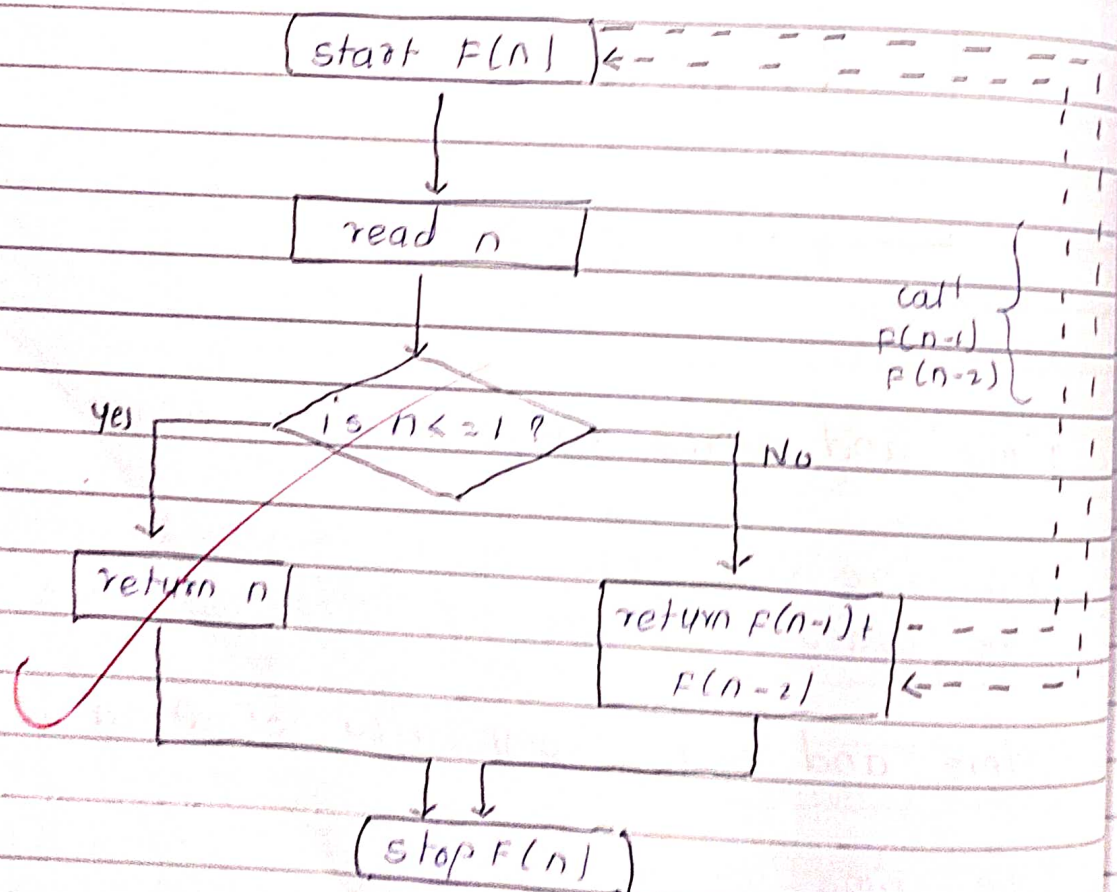 start F(n)
read n
call
F(n-1)
F(n-2)
is n<=1 ?
yes
No
return n
return F(n-1)+
F(n-2)
stop F(n)